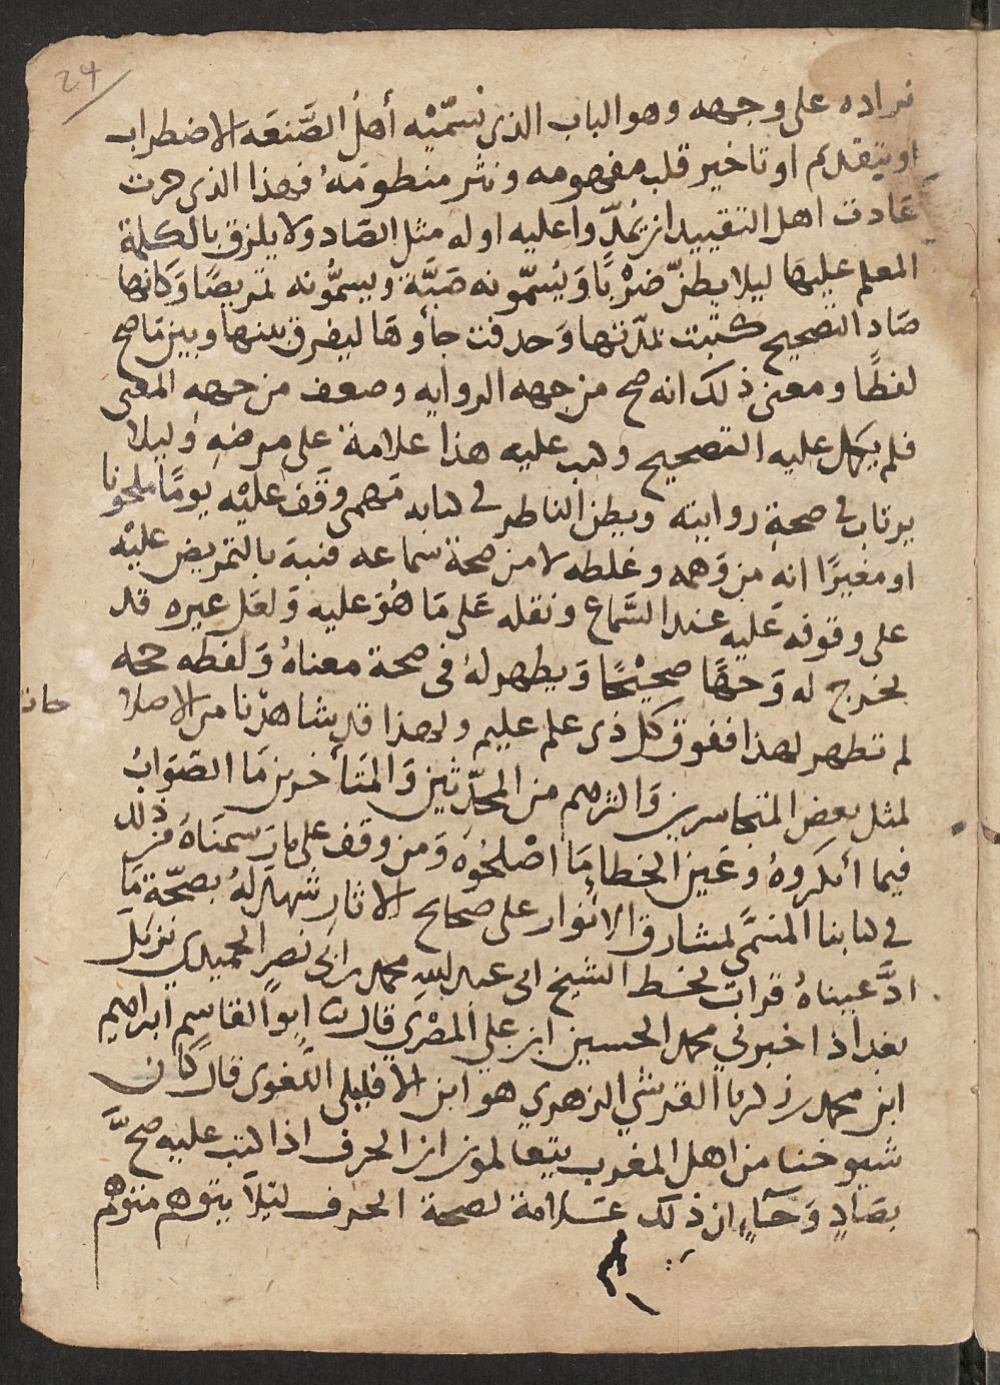 24
يراده على وجهه وهو الباب الذى تسمّيْه أهلُ الصَّنعَه الاضطراب
او بتقديم او تاخير قلب مفهومه ونثر منظومَهُ فهذا الذى جرت
عَادت اهل التقييد ان يمُدّوا عليه اوله مثل الصَاد ولا يلزق بالكلمة
المعلم عليهَا ليلا يظنّ ضرْبًا وَيُسمّونه ضبَّة ويسمُّونه تمريضًا وَكانها
صَاد التصحيح كتبت بمدّتها وَحذفت حاؤهَا ليفرق بينها وبين مَا صح
لفظًا ومعنى ذلك انه صح من جهه الروايه وضعف من جهه المعنى
فلم يكمل عليه التصحيح وكتب عليه هذا علامة على مرضه وَليلا
يرتاب في صحة روايته ويظن الناظر في كتابه مَهمى وقَفَ عليْه يومًا ملحونا
او مغيرًا انه من وَهمه وغلطه لا من صحة سماعه فنبه بالتمريض عليْه
على وقوفه عَليه عند السَّماع ونقله عَلى مَا هُوَ عليه وَلعَل غيره قد
يخرج له وَجهًا صحيْحًا وَيظهر لهُ في صحة معناهُ وَلفظه حجه
لم تظهر لهذا ففوق كل ذى علم عليم ولهذا قد شاهدْنا من الاصلا
حات
لمثل بعض المتجاسرين وَاكثرهم من المحدّثين وَالمتأخرين مَا الصّوَابُ
فيما أنكروهُ وعَين الخطا مَا اصْلحُوه وَمن وقف على مَا رَسمنَاهُ من ذلك
في كتابنا المسَمَّى بمشارق الأنوار على صحاح الاثار شهد لهُ بصحّة مَا
ادَّعيناهُ قرات بخط الشيخ ابى عبد لله محمد بن ابى نصر الحميدي نزيل
بغداذ اخبرني محمد الحسين ابن علي المصْري قال ثنا ابوا القاسم ابراهيم
ابن محمد بن زكريا القرشي الزهري هو ابن الافليلى اللّغوى قال كَان
شيوخنا من اهل المغرب يتعالمون ان الحرف اذا كتب عليه صحَّ
بصَادٍ وَحَاءٍ ان ذلك عَلامة لصحة الحرف لئِلاّ يتوهم متوهم